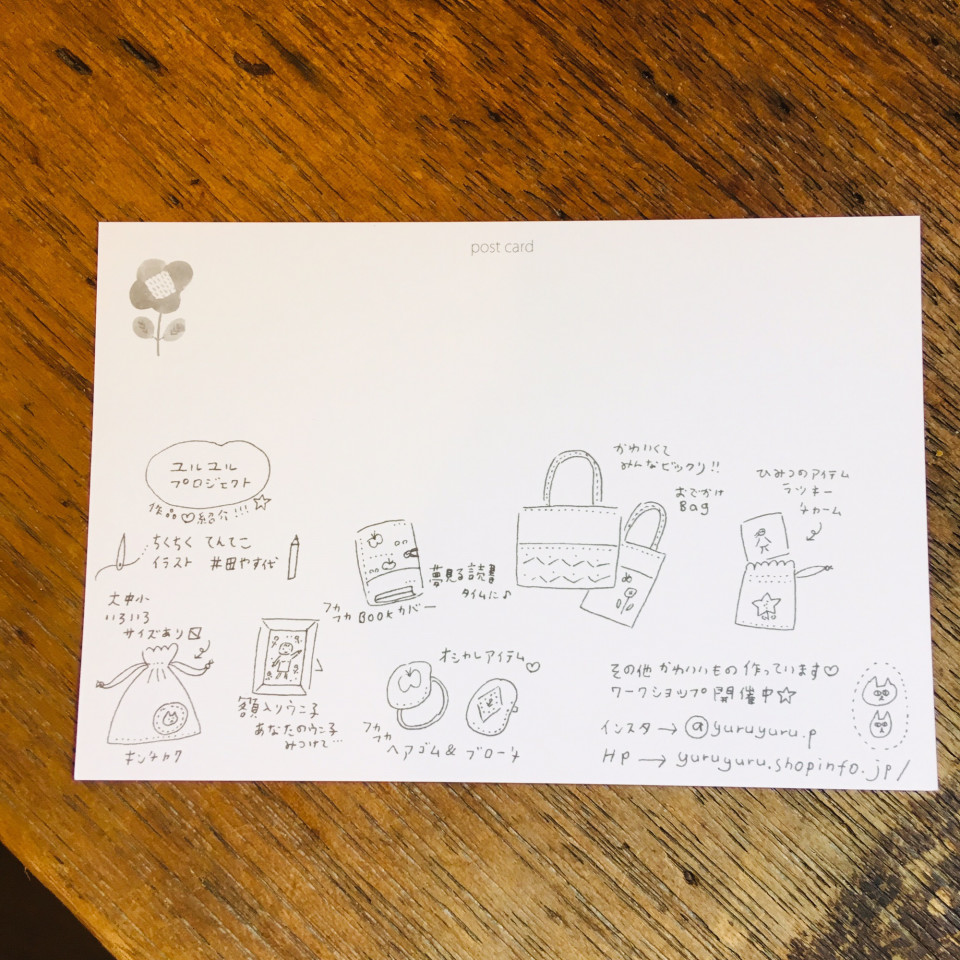 post card
ユルユル
プロジェクト
作品♡紹介!!!☆
ちくちく てんてこ
イラスト 井田やす代
大中小
いろいろ
サイズあり
キンチャク
額入りウニ子
あなたのウニ子
みつけて…
フカ
フカ BOOKカバー
夢見る読書
タイムに♪
オシャレアイテム♡
フカ
フカ
ヘアゴム & ブローチ
かわいくて
みんなビックリ!!
おでかけ
Bag
ひみつのアイテム
ラッキー
チャーム
その他 かわいいもの 作っています♡
ワークショップ 開催中☆
インスタ→@yuruyuru.p
HP→yuruyuru.shopinfo.jp/